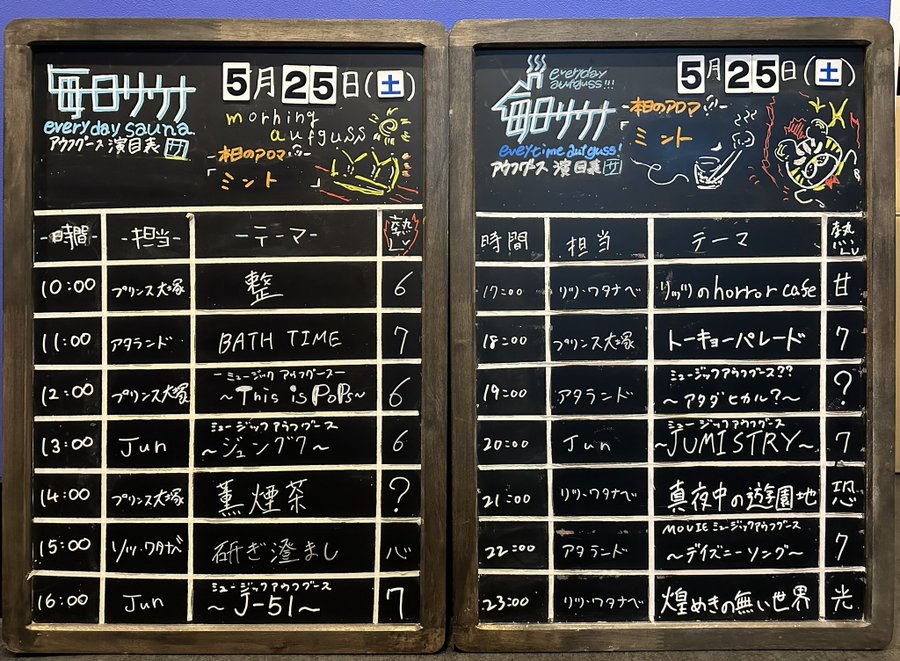 毎日サウナ
5月25日(土)
everyday sauna
morning
aufguss
アウフグース 演目表 サ
本日のアロマ
「ミント」
時間 担当 テーマ 熱Lv
10:00 プリンス大塚 整 6
11:00 アタランド BATH TIME 7
ミュージック アウフグース
12:00 プリンス大塚 ~This is PoPs~ 6
ミュージック アウフグース
13:00 Jun ~ジュングク~ 6
14:00 プリンス大塚 薫煙茶 ?
15:00 リツ・ワタナベ 研ぎ澄まし 心
ミュージックアウフグース
16:00 Jun ~J-51~ 7
everyday
aufguss!!!
毎日サウナ
5月25日(土)
everytime aufguss!
アウフグース 演目表 サ
本日のアロマ
「ミント
時間 担当 テーマ 熱Lv
17:00 リツ・ワタナベ リッツのhorror cafe 甘
18:00 プリンス大塚 トーキョーパレード 7
ミュージックアウフグース??
19:00 アタランド ~アタダヒカル?~ ?
ミュージックアウフグース
20:00 Jun ~JUMISTRY~ 7
21:00 リツ・ワタナベ 真夜中の遊園地 恐
MOVIE ミュージックアウフグース
22:00 アタランド ~デイズニーソング~ 7
23:00 リツ・ワタナベ 煌めきの無い世界 光